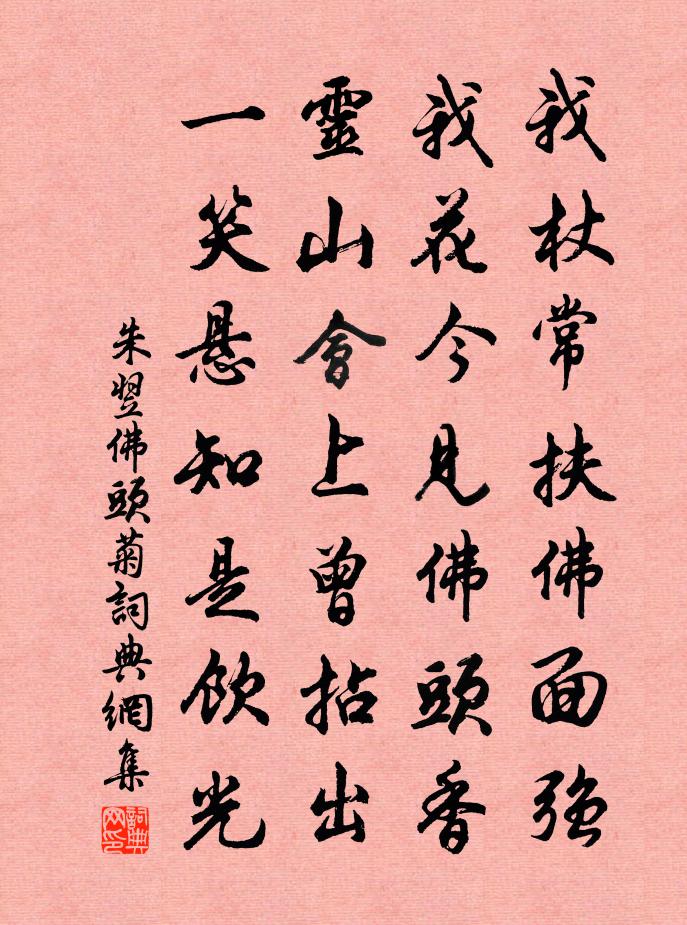 我杖常扶佛面強
我花今見佛頭香
靈山會上曾拈出
一笑懸知是飲光
朱翌佛頭菊詞典網集
詞典网印